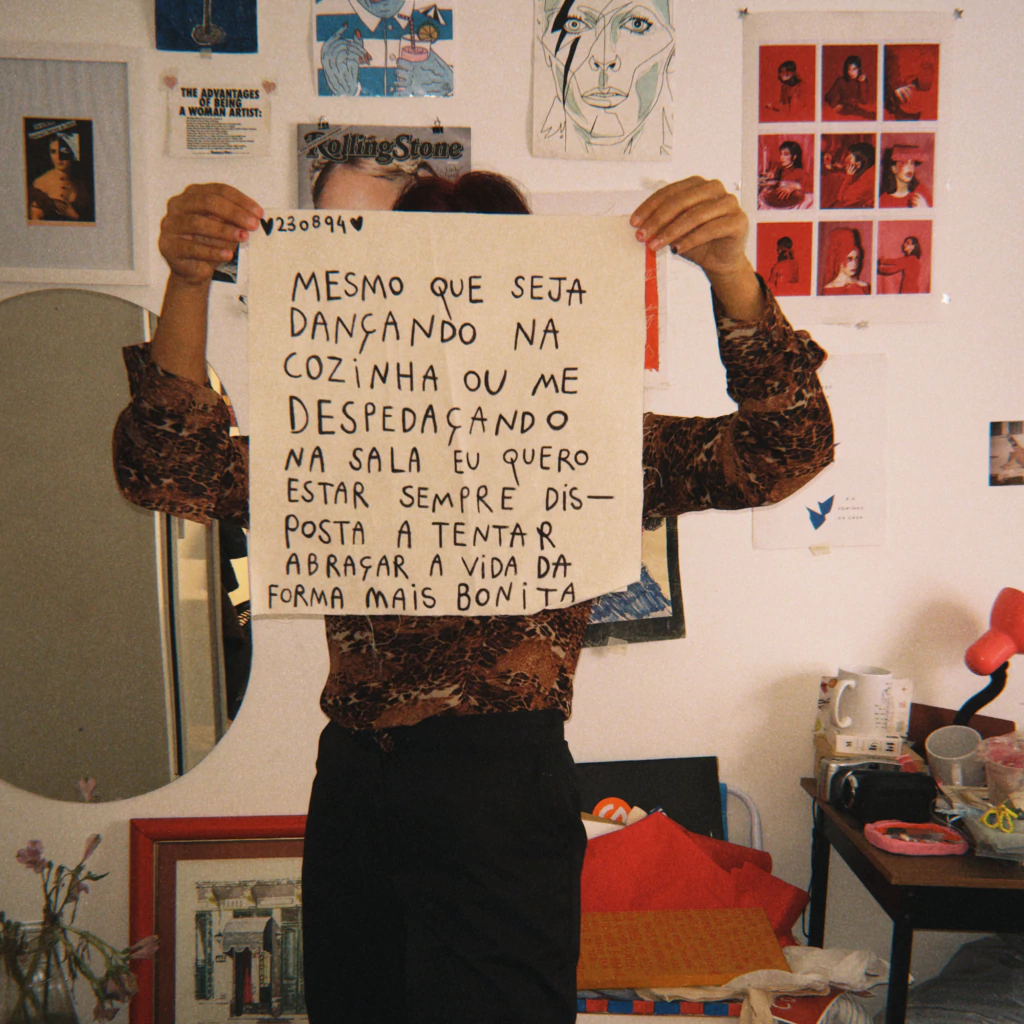 THE ADVANTAGES
OF BEING
A WOMAN ARTIST:
RollingStone
♥230894♥
MESMO QUE SEJA
DANÇANDO NA
COZINHA OU ME
DESPEDAÇANDO
NA SALA EU QUERO
ESTAR SEMPRE DIS-
POSTA A TENTAR
ABRAÇAR A VIDA DA
FORMA MAIS BONITA